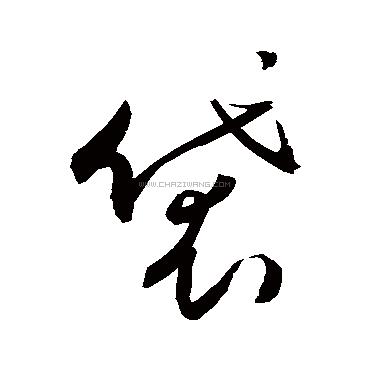 袋
WWW.CHAZIWANG.COM